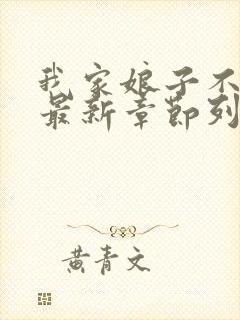 我家娘子不
最新章節列
黄青文